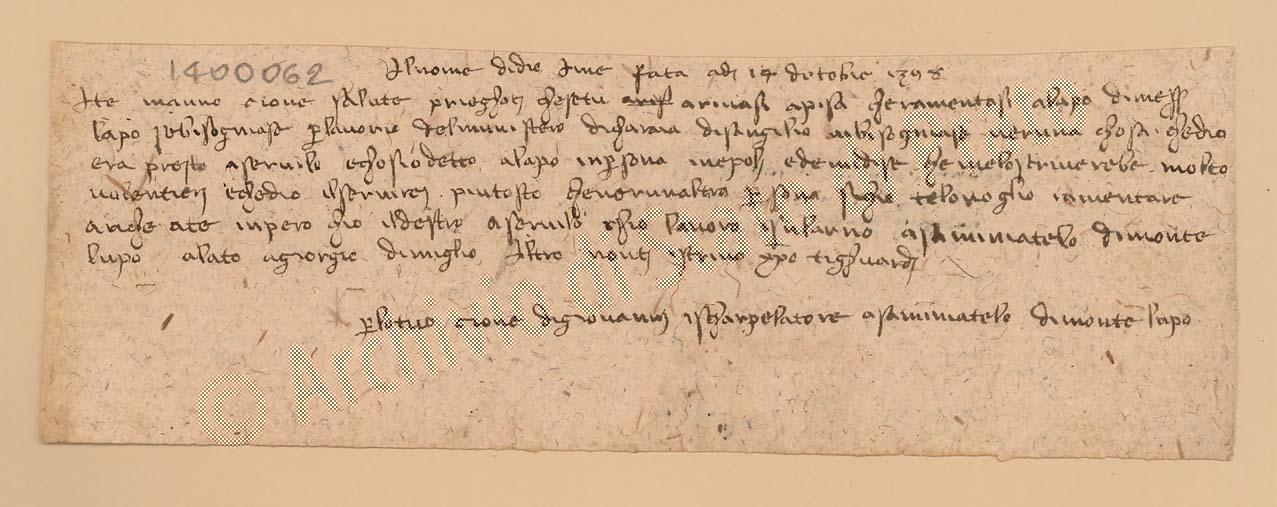 1400062
Al nome didio Ame fata adj 14 dotobre 1398
Ate manno cione salute prieghotj chesettu arivasi apisa cheramentasi alapo dimess
lapo sebisogniase per lavorio delmunistero dicharaia disangilio nibisogniase neruna chosa chedio
era presto aservilo echosio detto alapo inpersona inepolj edemi dise chemelo scriverebe molto
volentierj echedio il servirej piutosto cheneruna altra persona siche telo voglio ramentare
anche ate inpero chio il destro aservilo chio lavoro isularno asamminiatelo dimonte
lupo alato agiorgio dimiglio Altro nontj iscrivo xpo tighuardj
per lo tuo cione digiovannj ischarpelatore asamminiatelo dimonte lupo
© Archivio di Stato